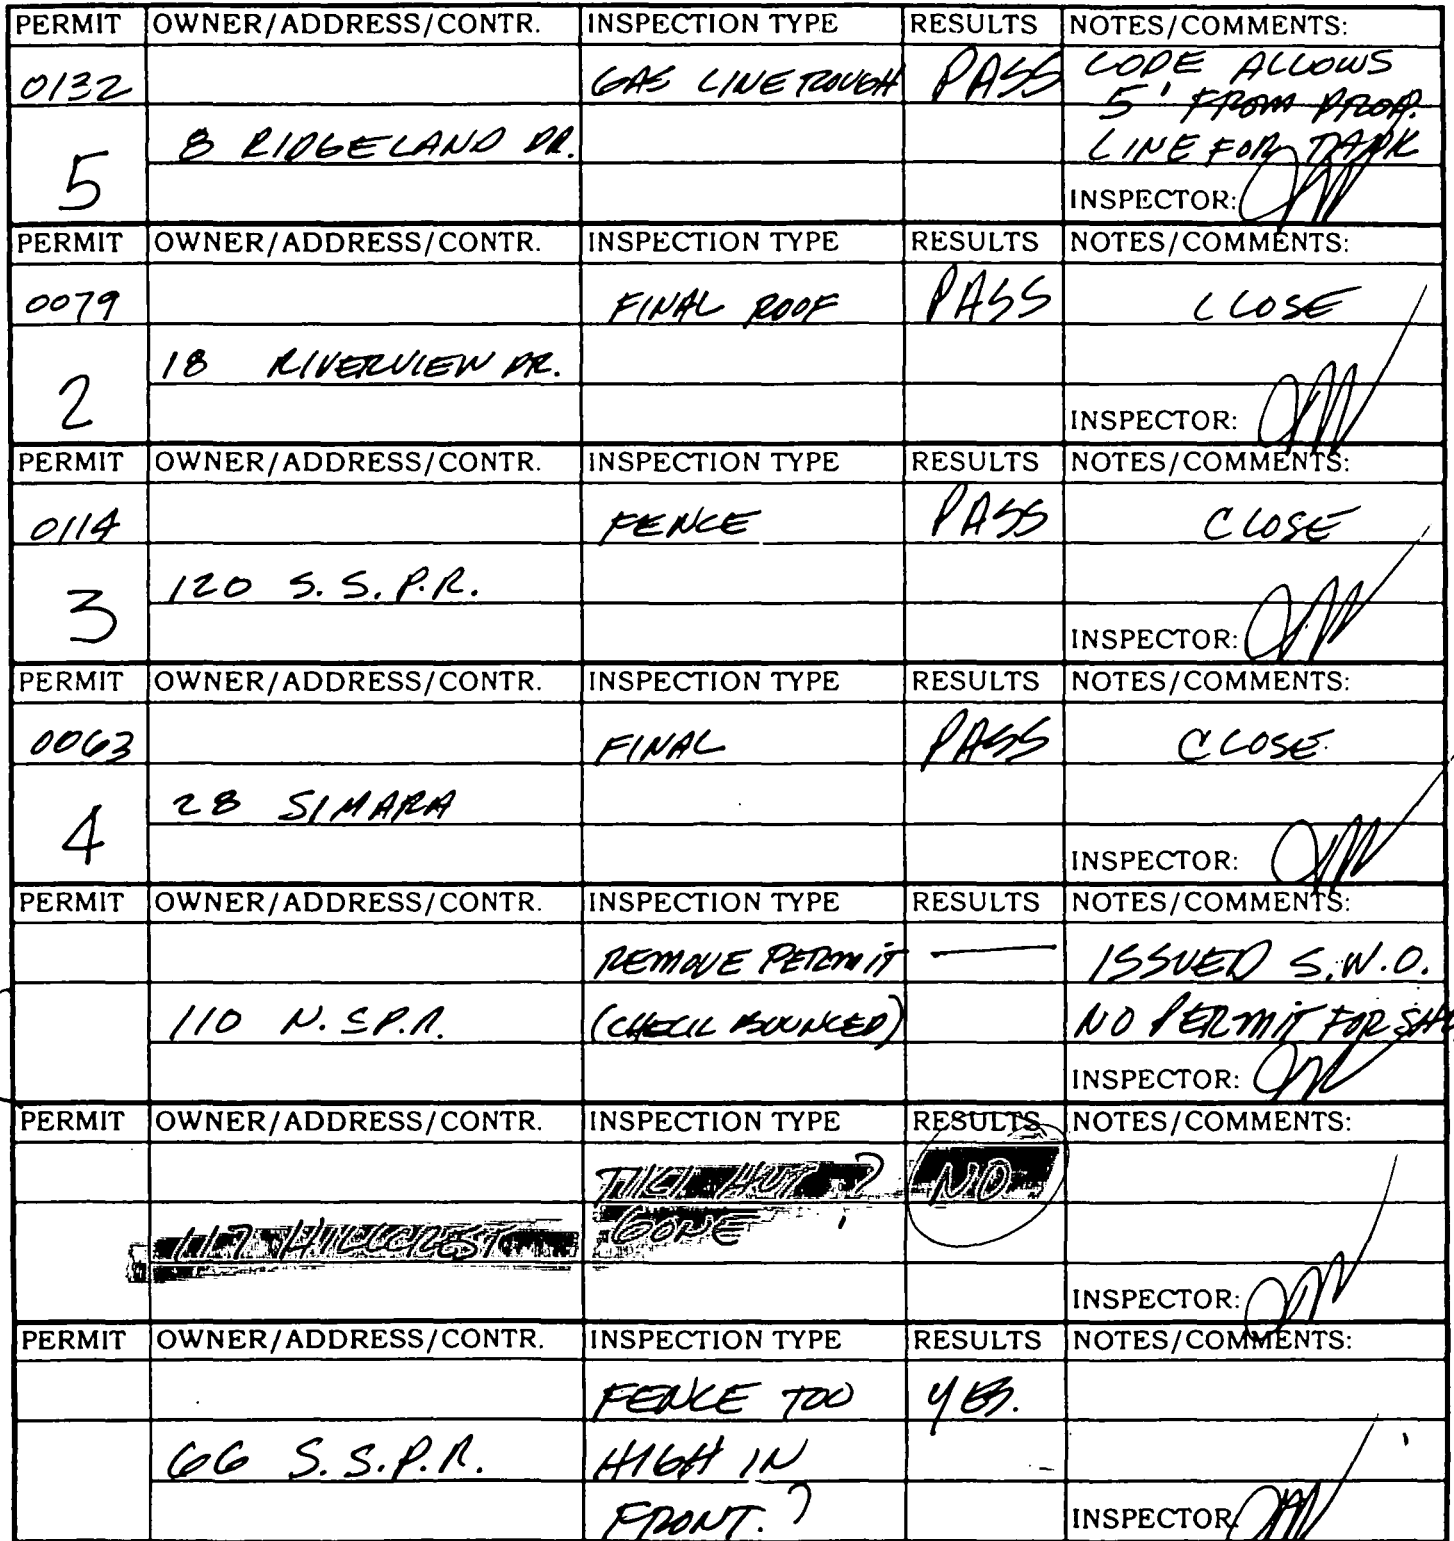 PERMIT OWNER/ADDRESS/CONTR. INSPECTION TYPE RESULTS NOTES/COMMENTS:
0132 GAS LINE ROUGH PASS CODE ALLOWS
5' FROM PROP.
5 8 RIDGELAND DR. LINE FOR TANK
INSPECTOR:
PERMIT OWNER/ADDRESS/CONTR. INSPECTION TYPE RESULTS NOTES/COMMENTS:
0079 FINAL ROOF PASS CLOSE
18 RIVERVIEW DR.
2 INSPECTOR:
PERMIT OWNER/ADDRESS/CONTR. INSPECTION TYPE RESULTS NOTES/COMMENTS:
0114 FENCE PASS CLOSE
120 S. S. P.R.
3 INSPECTOR:
PERMIT OWNER/ADDRESS/CONTR. INSPECTION TYPE RESULTS NOTES/COMMENTS:
0063 FINAL PASS CLOSE
28 SIMARA
4 INSPECTOR:
PERMIT OWNER/ADDRESS/CONTR. INSPECTION TYPE RESULTS NOTES/COMMENTS:
REMOVE PERMIT — ISSUED S.W.O.
110 N. S.P.R. (CHECK BOUNCED) NO PERMIT FOR
INSPECTOR:
PERMIT OWNER/ADDRESS/CONTR. INSPECTION TYPE RESULTS NOTES/COMMENTS:
TIKI HUT ? NO
117 HILLCREST GONE
INSPECTOR:
PERMIT OWNER/ADDRESS/CONTR. INSPECTION TYPE RESULTS NOTES/COMMENTS:
FENCE TOO YES.
66 S. S. P.R. HIGH IN
FRONT. ? INSPECTOR: